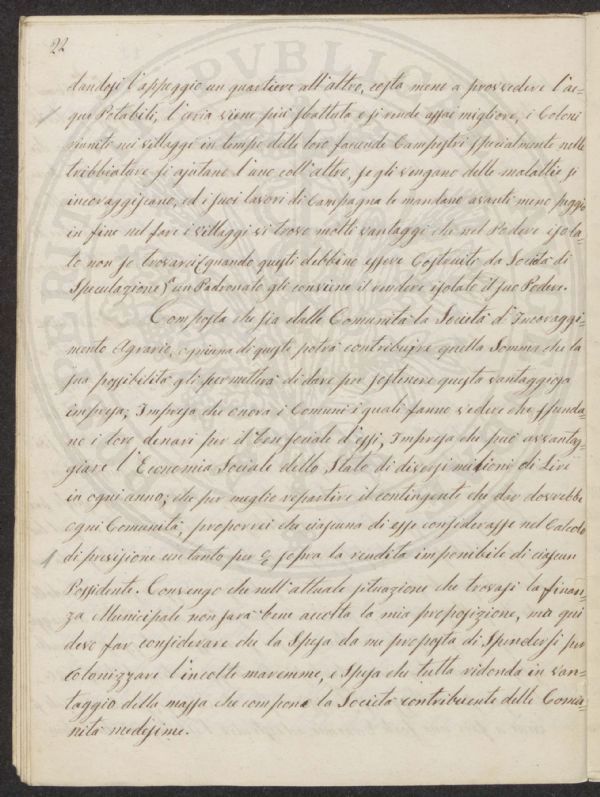 22
dandosi l'appoggio un quartiere all'altro, costa meno a provvedere l'ac-
que Potabili, l'aria viene più sbattuta e si rende assai migliore, i Coloni
riuniti nei villaggi in tempo delle loro faccende Campestri specialmente nelle
tribbiature si ajutano l'uno coll'altro, se gli vengano delle malattie si
incoraggiscano, ed i suoi lavori di Campagna le mandano avanti meno peggio
in fine nel fare i villaggi si trova molti vantaggi che nel Podere isola-
to non se trovarsi (quando questi debbino essere Costruiti da Società di
Speculazione) un Padronato gli conviene il rendere isolato il suo Podere.
Composta che sia dalle Comunità la Società d'Incoraggi-
mento Agrario, ognuna di questi potrà contribuire quella Somma che la
sua possibilità gli permetterà di dare per sostenere questa vantaggiosa
impresa; Impresa che onora i Comuni i quali fanno vedere che spenda-
no i loro denari per il ben sociale d'essi, Impresa che può avvantag-
giare l'Economia Sociale dello Stato di diversi milioni di Lire
in ogni anno; che per meglio repartire il contingente che dar dovrebbe
ogni Comunità, proporrei che ciascuna di esse considerasse nel Calcolo
di previsione un tanto per % sopra la rendita imponibile di ciascun
Possidente. Convengo che nell'attuale situazione che trovasi la finan-
za Municipale non sarà bene accolta la mia proposizione, ma qui
devo far considerare che la Spesa da me proposta di Spendersi per
colonizzare l'incolte maremme, è Spesa che tutta ridonda in van-
taggio della massa che compone la Società contribuente delle Comu-
nità medesime.